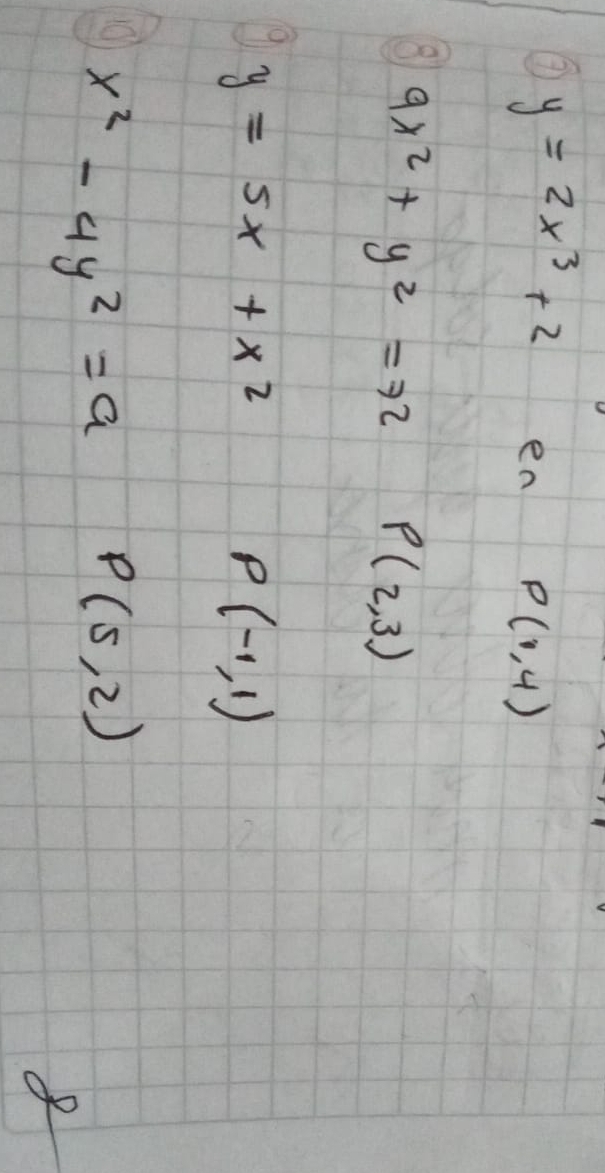 ⑦ y = 2x³ + 2 en P(1,4)
⑧ 9x² + y² = 72 P(2,3)
⑨ y = 5x + x² P(-1,1)
⑩ x² - 4y² = 9 P(5,2)